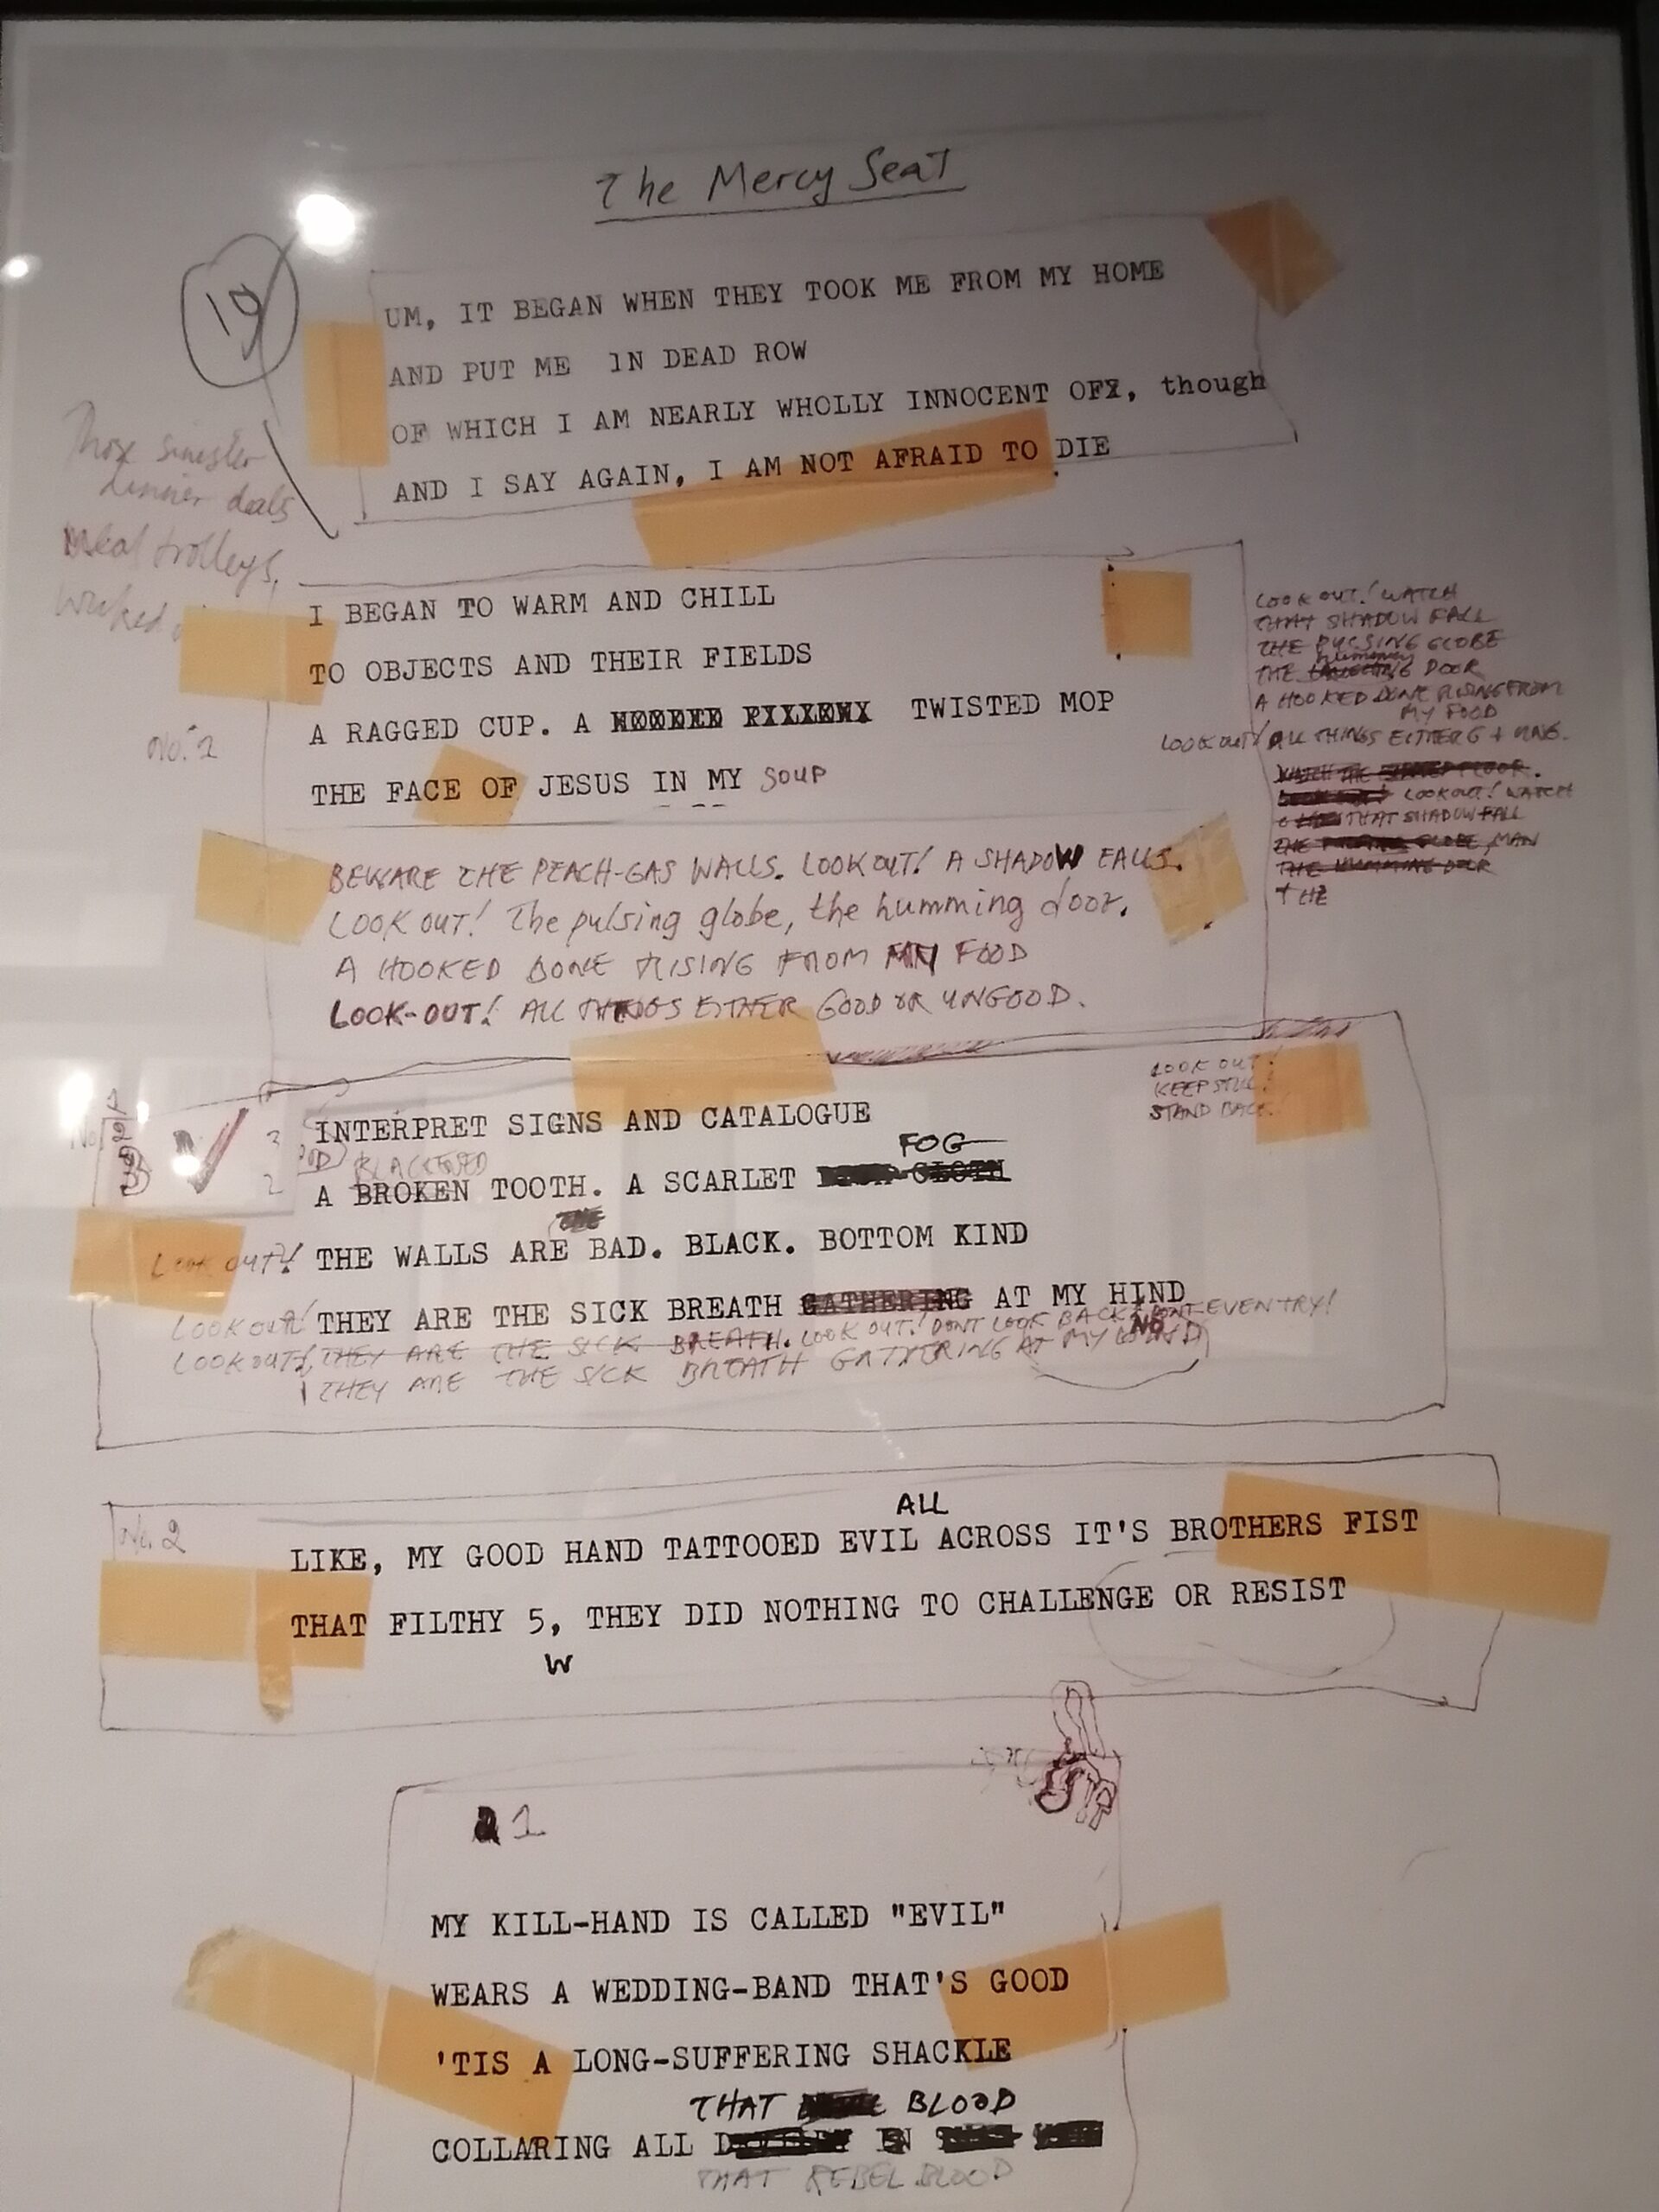 The Mercy Seat
19
UM, IT BEGAN WHEN THEY TOOK ME FROM MY HOME
AND PUT ME IN DEAD ROW
OF WHICH I AM NEARLY WHOLLY INNOCENT OFX, though
AND I SAY AGAIN, I AM NOT AFRAID TO DIE.
sinister
dinner deals
meal trolleys,
wicked
I BEGAN TO WARM AND CHILL
TO OBJECTS AND THEIR FIELDS
A RAGGED CUP. A TWISTED MOP
THE FACE OF JESUS IN MY SOUP
LOOK OUT! WATCH
THAT SHADOW FALL
THE PULSING GLOBE
THE humming DOOR
A HOOKED BONE RISING FROM
MY FOOD
LOOK OUT! ALL THINGS EITHER G + UNG.
LOOKOUT! WATCH
THAT SHADOW FALL
GLOBE, MAN
THE HUMMING DOOR
THE
BEWARE THE PEACH-GAS WALLS. LOOK OUT! A SHADOW FALLS.
LOOK OUT! The pulsing globe, the humming door.
A HOOKED BONE RISING FROM MY FOOD
LOOK-OUT! ALL THINGS EITHER GOOD OR UNGOOD.
LOOK OUT!
KEEP STILL!
STAND BACK!
3
INTERPRET SIGNS AND CATALOGUE
FOG
BLACKENED
2
A BROKEN TOOTH. A SCARLET CLOTH
THE
LOOK OUT! THE WALLS ARE BAD. BLACK. BOTTOM KIND
LOOK OUT! THEY ARE THE SICK BREATH GATHERING AT MY HIND
LOOK OUT! THEY ARE THE SICK BREATH. LOOK OUT! DONT LOOK BACK! DONT EVEN TRY!
NO
THEY ARE THE SICK BREATH GATHERING AT MY
No. 2
ALL
LIKE, MY GOOD HAND TATTOOED EVIL ACROSS IT'S BROTHERS FIST
THAT FILTHY 5, THEY DID NOTHING TO CHALLENGE OR RESIST
W
1
MY KILL-HAND IS CALLED "EVIL"
WEARS A WEDDING-BAND THAT'S GOOD
'TIS A LONG-SUFFERING SHACKLE
THAT BLOOD
COLLARING ALL
THAT REBEL BLOOD